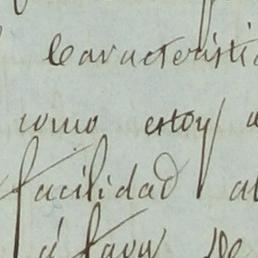 Caracteristi
como estoy a
facilidad al
á favor de